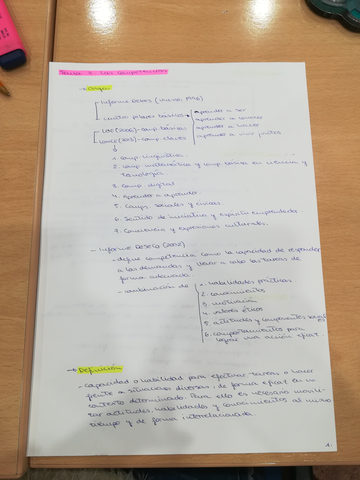 Las competencias
→ Origen
Informe Delors (Unesco, 1996)
cuatro pilares básicos → aprender a ser
aprender a conocer
aprender a hacer
aprender a vivir juntos
LOE (2006): comp. básicas
LOMCE (2013): comp. claves
1. Comp. lingüística.
2. Comp. matemática y comp. básicas en ciencia y
tecnología
3. Comp. digital
4. Aprender a aprender.
5. Comps. sociales y cívicas
6. Sentido de iniciativa y espíritu emprendedor.
7. Conciencia y expresiones culturales.
- Informe DeSeCo (2002)
- define competencia como la capacidad de responder
a las demandas y llevar a cabo las tareas de
forma adecuada
- combinación de
1. habilidades prácticas
2. conocimientos
3. motivación
4. valores éticos
5. actitudes y
6. comportamientos para
lograr una acción eficaz.
→ Definición
- capacidad o habilidad para efectuar tareas o hacer
frente a situaciones diversas de forma eficaz en un
contexto determinado. Para ello es necesario movili-
zar actitudes, habilidades y conocimientos al mismo
tiempo y de forma interrelacionada.